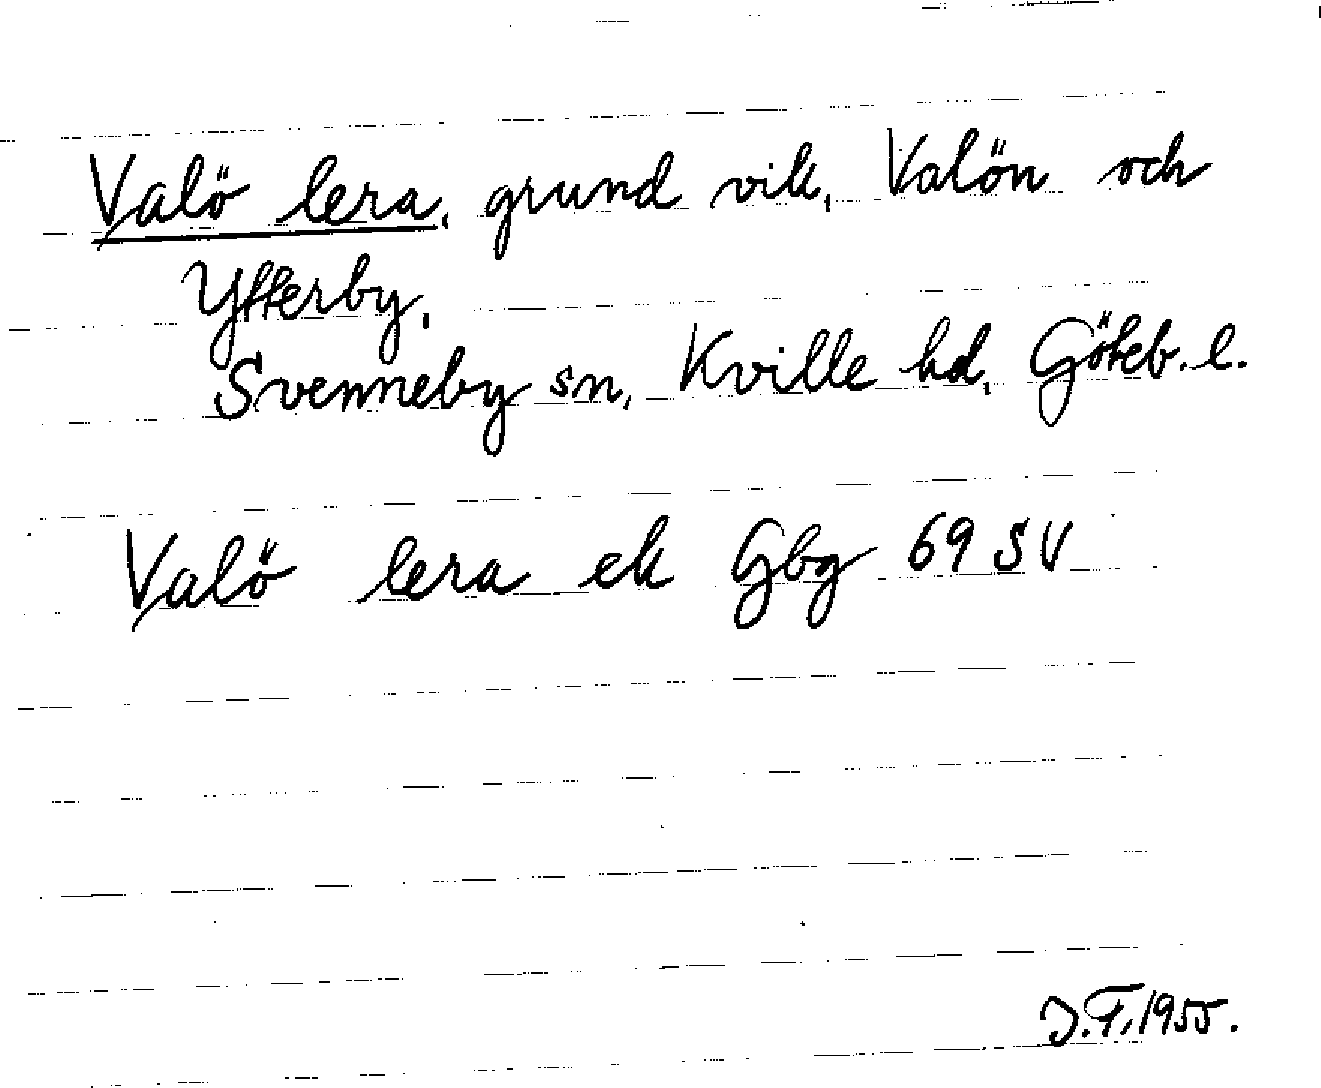 Valö lera, grund vik, Valön och
Yfferby,
Svenneby sn, Kville hd, Göteb. l.
Valö lera ek Gbg 69 SV
J.F, 1955.